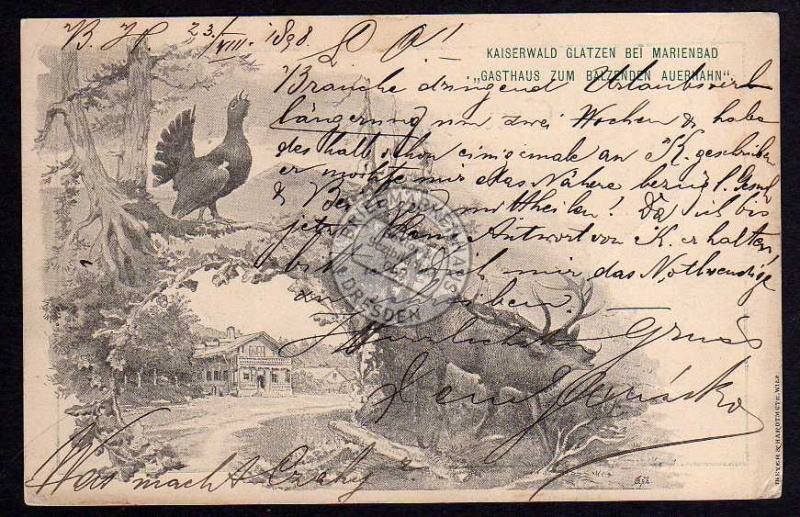 B. H. 23./VIII. 1898. L. O!!
KAISERWALD GLATZEN BEI MARIENBAD
„GASTHAUS ZUM BALZENDEN AUERHAHN“
Brauche dringend Urlaubsver
längerung um zwei Wochen & habe
deshalb schon einigemale an K. geschrieben
er möchte mir das Nähere bezügl.
& mittheilen! Da ich bis
jetzt Antwort von K. erhalten,
bitte Dich mir das Nothwendige
zu schreiben.
Herzlichsten Gruss
Was macht Czaky?
DRESDEN